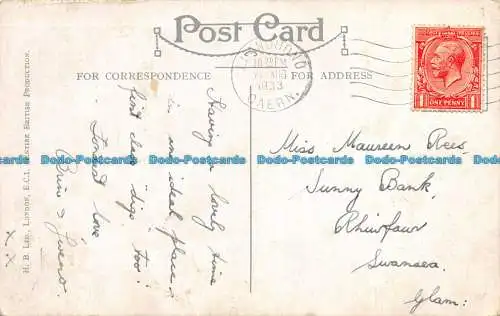 Post Card
FOR CORRESPONDENCE
FOR ADDRESS
LLANDUDNO
1933
CAERN
POSTAGE REVENUE
ONE PENNY
Having a lovely time
in an ideal place,
first class digs too!
Fondest love
H. B. Ltd., London, E.C.1. Entire British Production.
Miss Maureen Rees,
Sunny Bank,
Rhiwfawr
Swansea.
Glam:
Dodo-Postcards Dodo-Postcards Dodo-Postcards Dodo-Postcards Dodo-Postcards